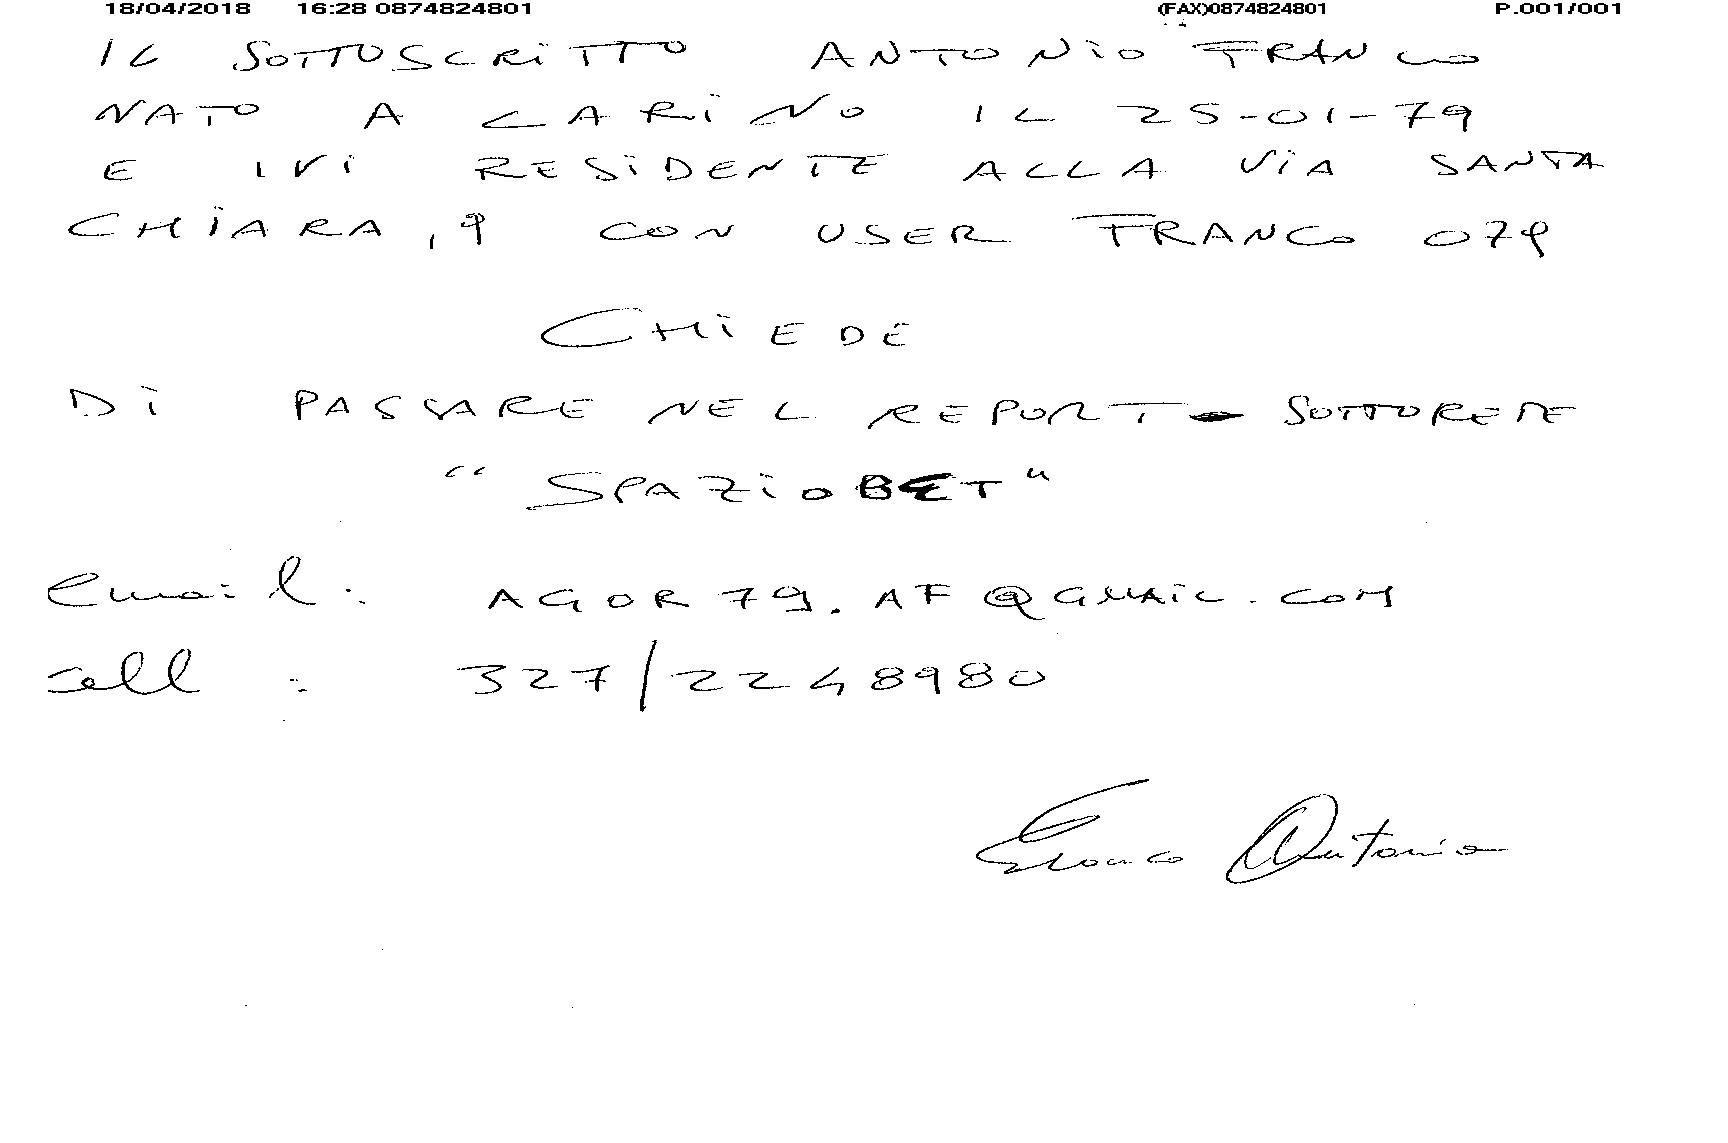 18/04/2018 16:28 0874824801 (FAX)0874824801 P.001/001
IL SOTTOSCRITTO ANTONIO FRANCO
NATO A LARINO IL 25-01-79
E IVI RESIDENTE ALLA VIA SANTA
CHIARA, 9 CON USER FRANCO 079
CHIEDE
DI PASSARE NEL REPORT - SOTTORETE
“SPAZIOBET”
email: AGOR79.AF@GMAIL.COM
cell: 327/2248980
Franco Antonio